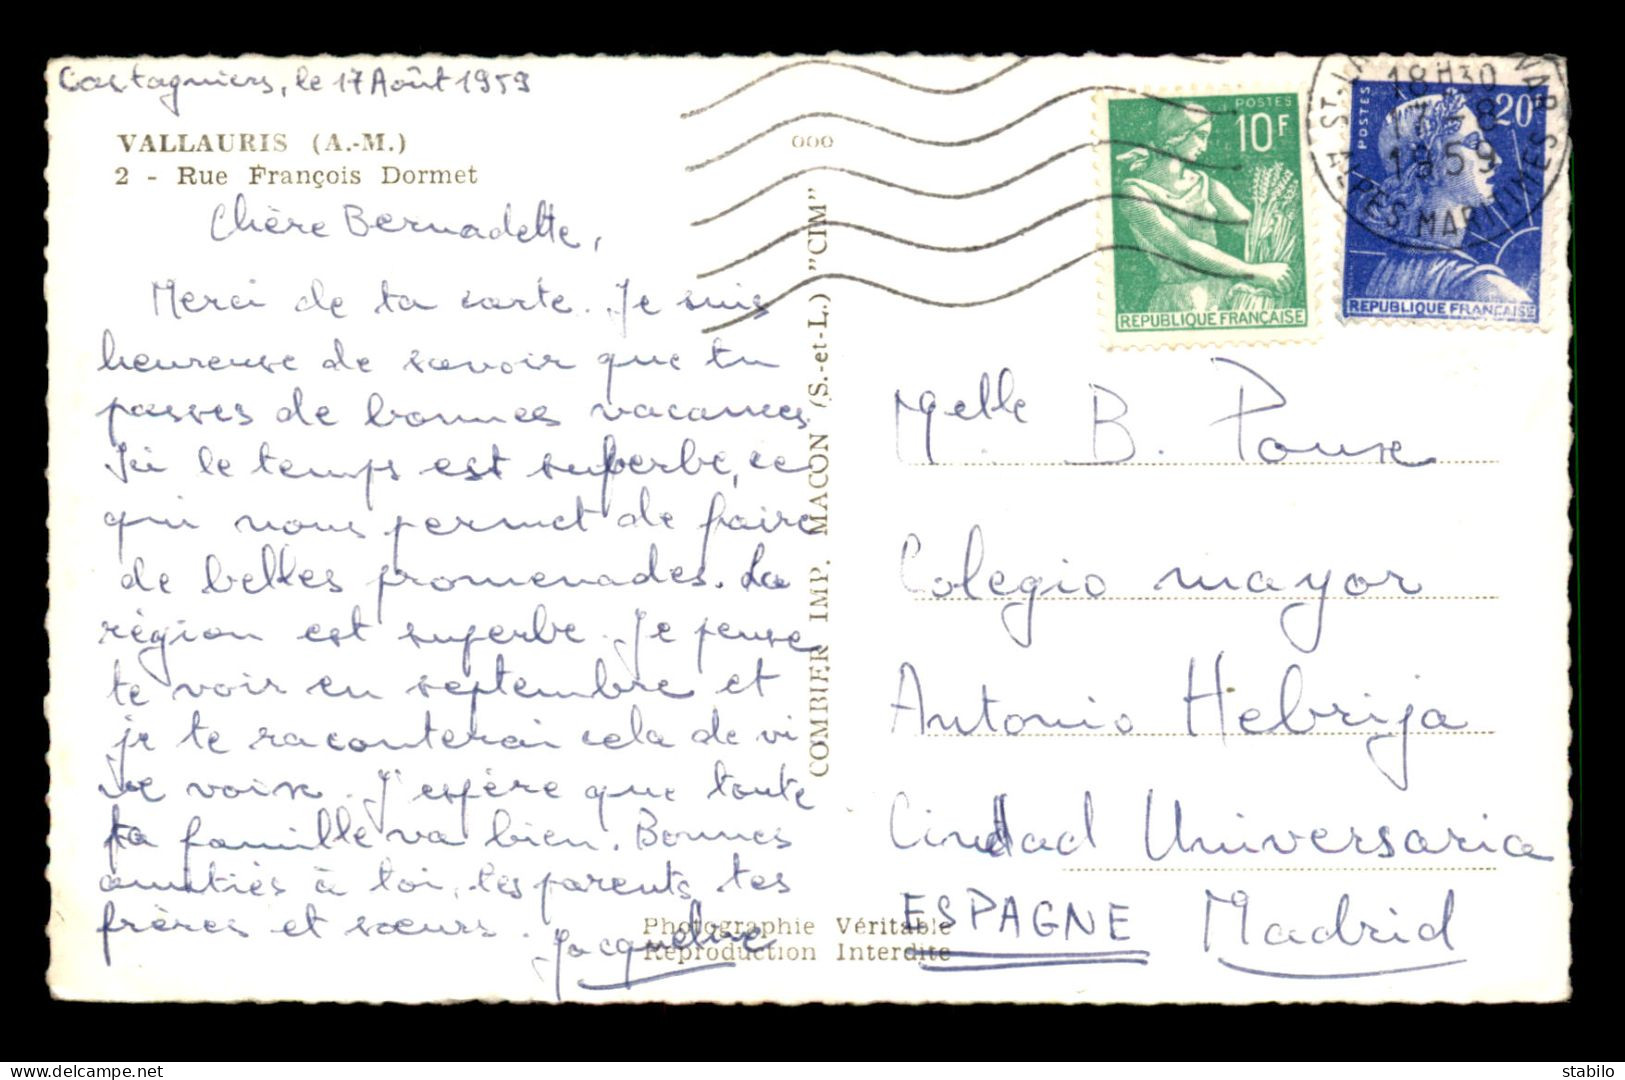 Castagniers, le 17 Août 1959
VALLAURIS (A.-M.)
2 - Rue François Dormet
Chère Bernadette,
Merci de ta carte. Je suis
heureuse de savoir que tu
passes de bonnes vacances.
Ici le temps est superbe, ce
qui nous permet de faire
de belles promenades. La
région est superbe. Je pense
te voir en septembre et
je te raconterai cela de vi
ve voix. J'espère que toute
ta famille va bien. Bonnes
amitiés à toi, tes parents, tes
frères et sœurs.
Jacqueline
ooo
COMBIER IMP. MACON (S.-et-L.) "CIM"
Photographie Véritable
Reproduction Interdite
POSTES
10F
REPUBLIQUE FRANÇAISE
POSTES
20F
REPUBLIQUE FRANÇAISE
18H30
17-8
1959
ALPES MARITIMES
Melle B. Pouse
Colegio mayor
Antonio Hebrija
Ciudad Universaria
ESPAGNE Madrid
stabilo
www.delcampe.net